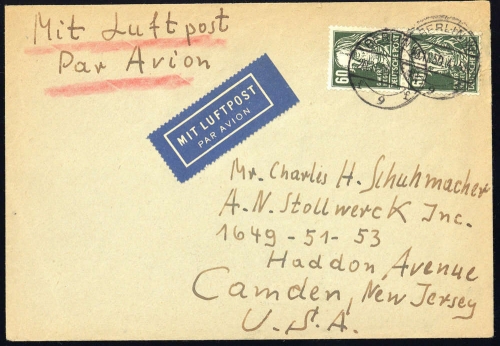 Mit Luftpost
Par Avion
MIT LUFTPOST
PAR AVION
60
DEUTSCHE POST
60
DEUTSCHE POST
BERLIN
Mr. Charles H. Schuhmacher
A. N. Stollwerck Inc.
1649-51-53
Haddon Avenue
Camden, New Jersey
U.S.A.